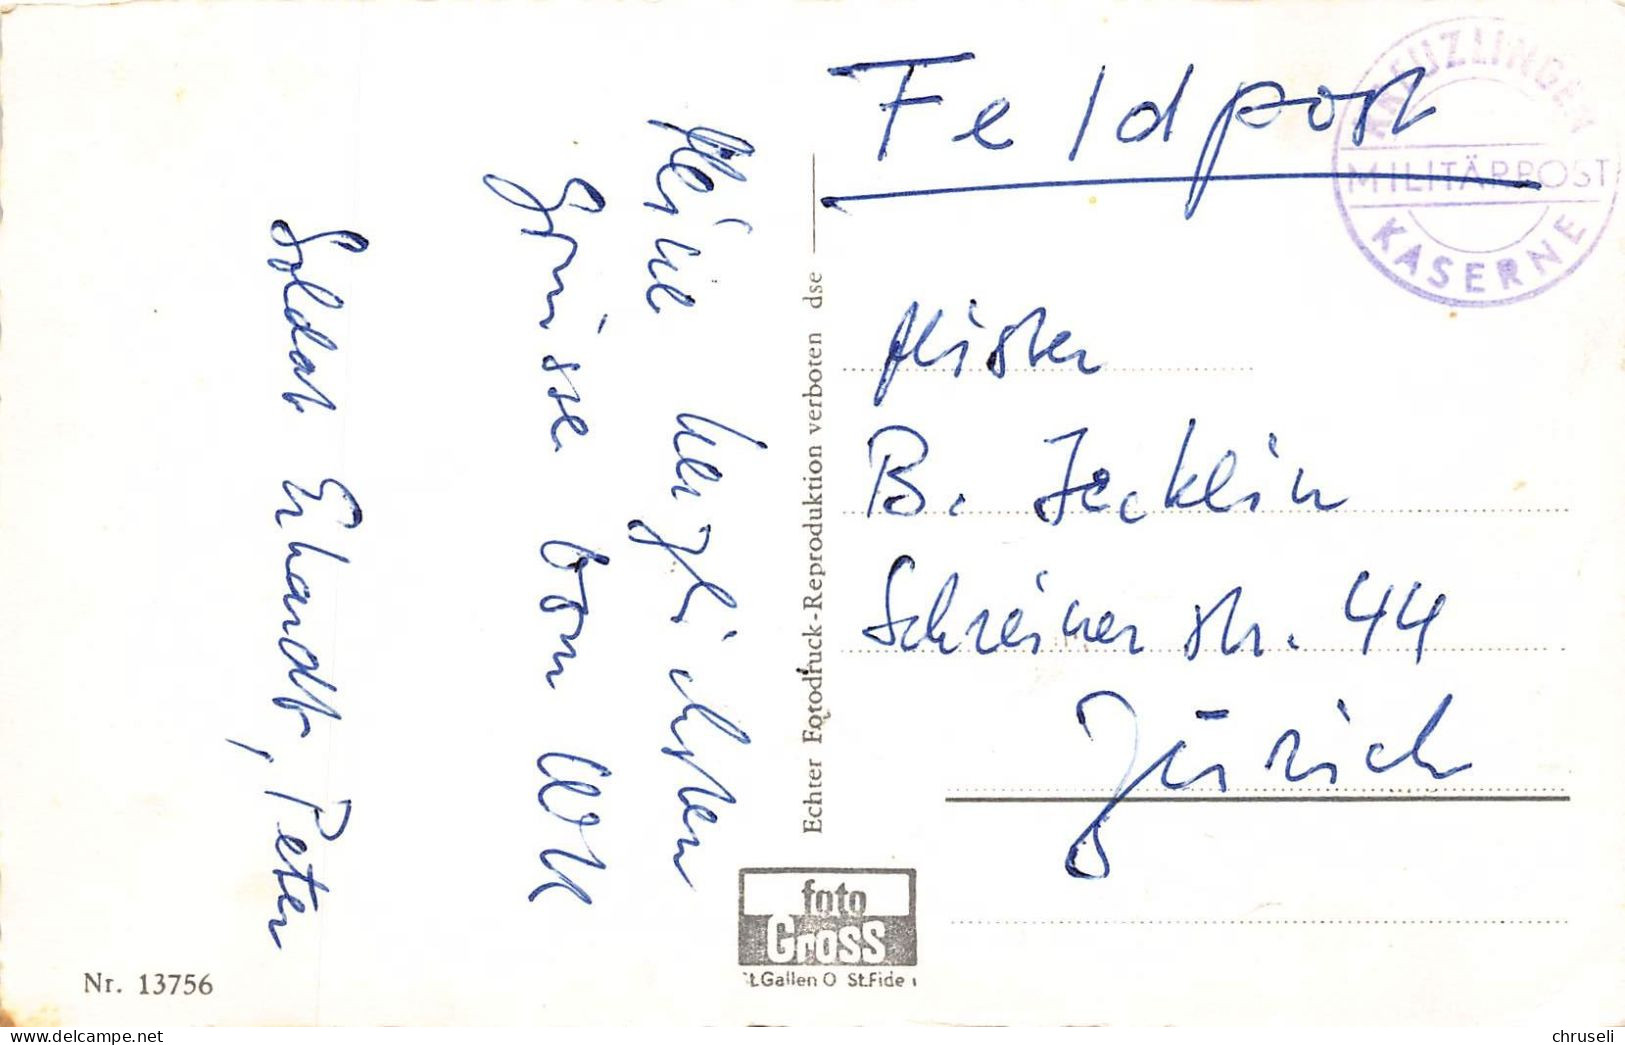 Feldpost
KREUZLINGEN
MILITÄRPOST
KASERNE
Meine herzlichsten
Grüsse vom WK
Soldat Erhardt, Peter
Mister
B. Jecklin
Schreinerstr. 44
Zürich
Echter Fotodruck-Reproduktion verboten dse
foto
Gross
St.Gallen O St.Fide
Nr. 13756
chruseli